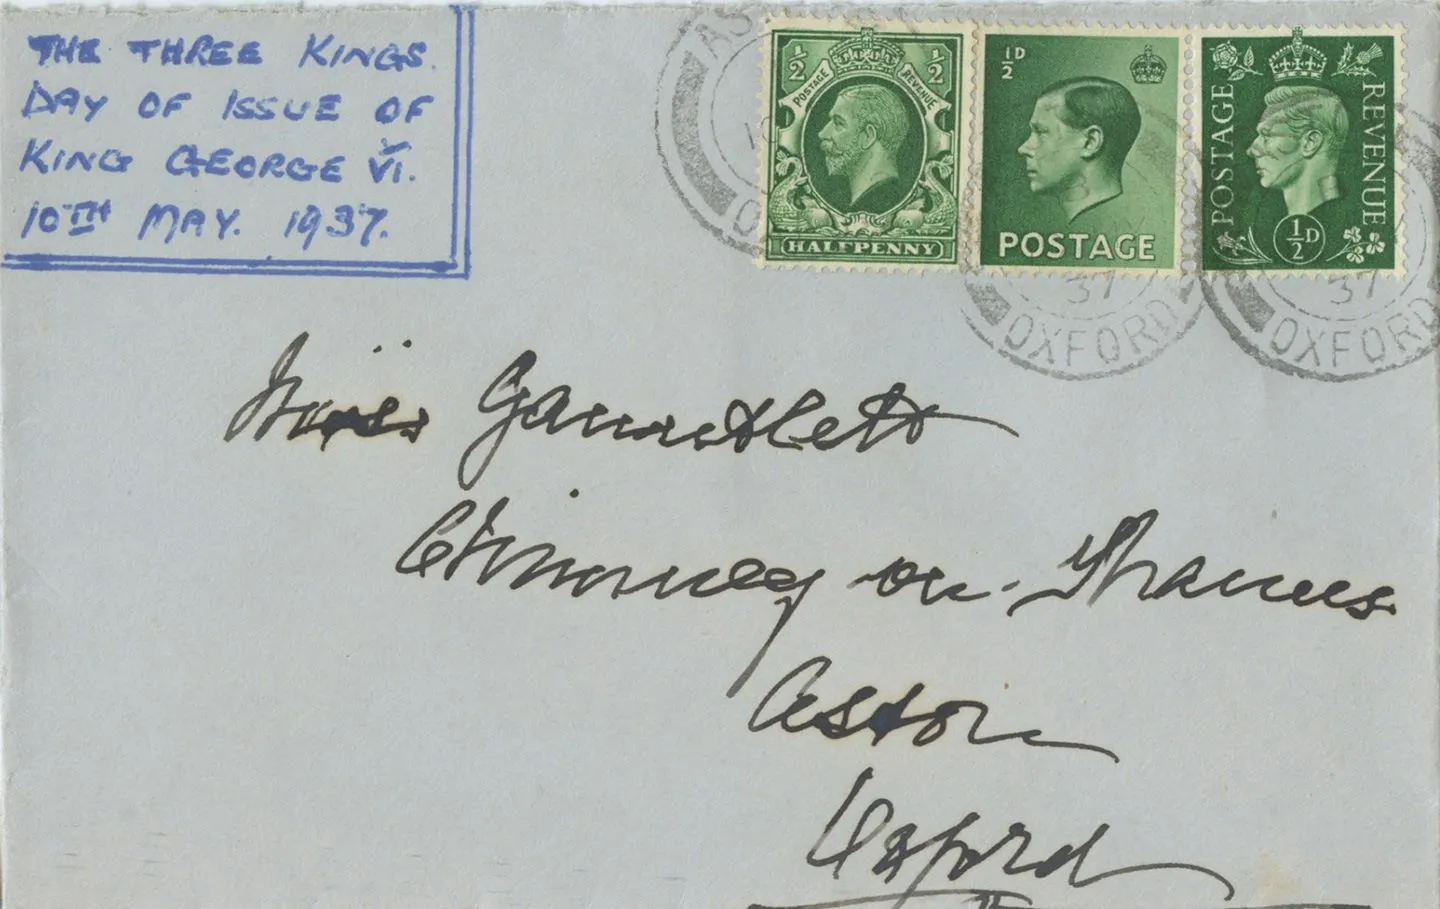 THE THREE KINGS.
DAY OF ISSUE OF
KING GEORGE VI.
10TH MAY. 1937.
AS
½ ½
POSTAGE REVENUE
HALFPENNY
½D
POSTAGE
POSTAGE REVENUE
½D
37
OXFORD
37
OXFORD
Miss Gauntlett
on Thames
Aston
Oxford